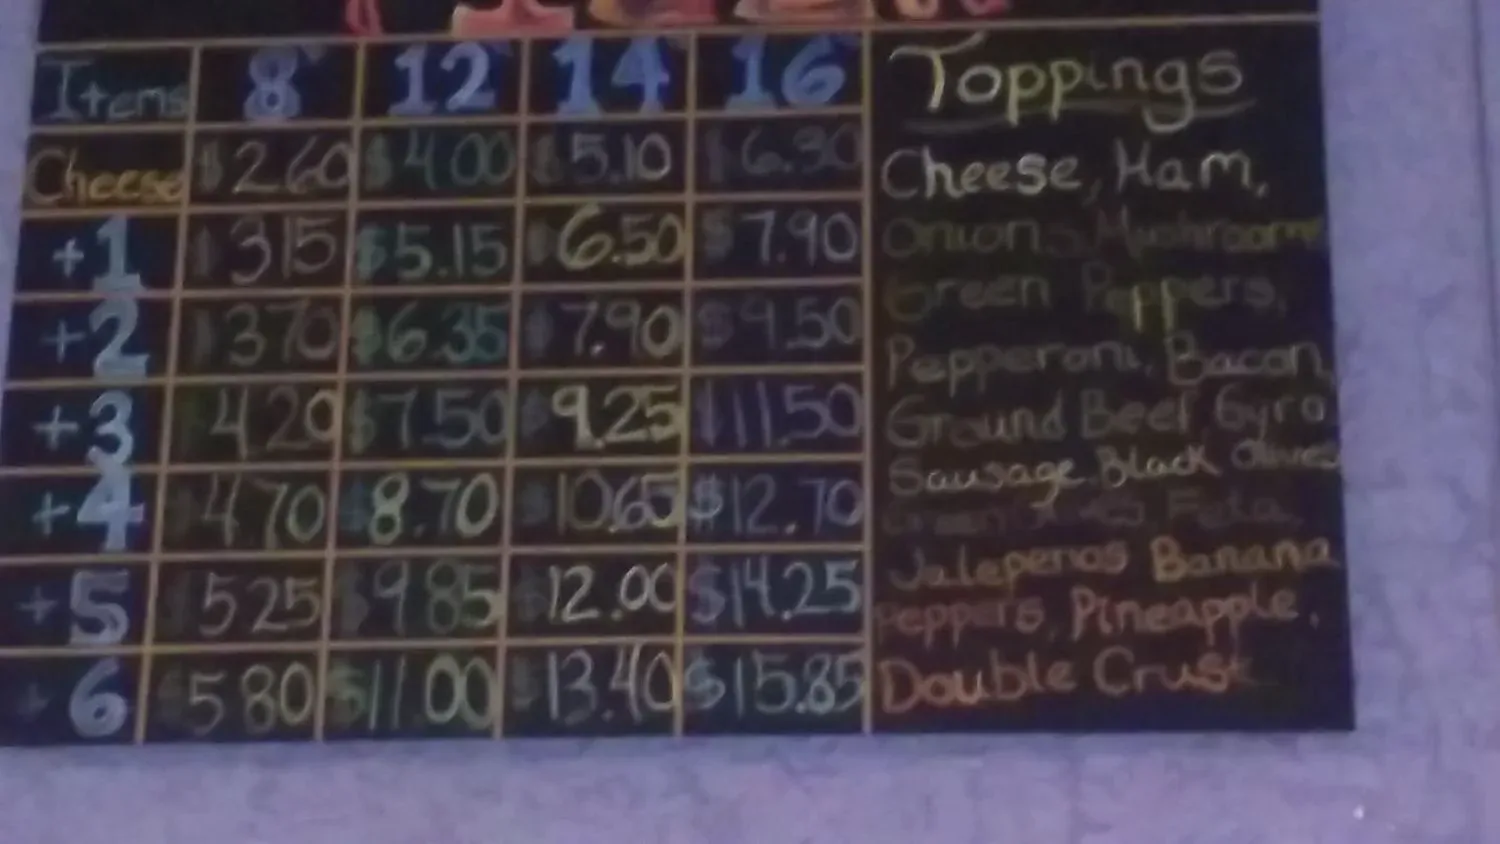 Items 8" 12" 14" 16"
Cheese $2.60 $4.00 $5.10 $6.30
+1 $3.15 $5.15 $6.50 $7.90
+2 $3.70 $6.35 $7.90 $9.50
+3 $4.20 $7.50 $9.25 $11.50
+4 $4.70 $8.70 $10.65 $12.70
+5 $5.25 $9.85 $12.00 $14.25
+6 $5.80 $11.00 $13.40 $15.85
Toppings
Cheese, Ham,
Onions, Mushrooms
Green Peppers,
Pepperoni, Bacon,
Ground Beef, Gyro
Sausage, Black Olives
Green Feta,
Jalepenos Banana
Peppers, Pineapple,
Double Crust